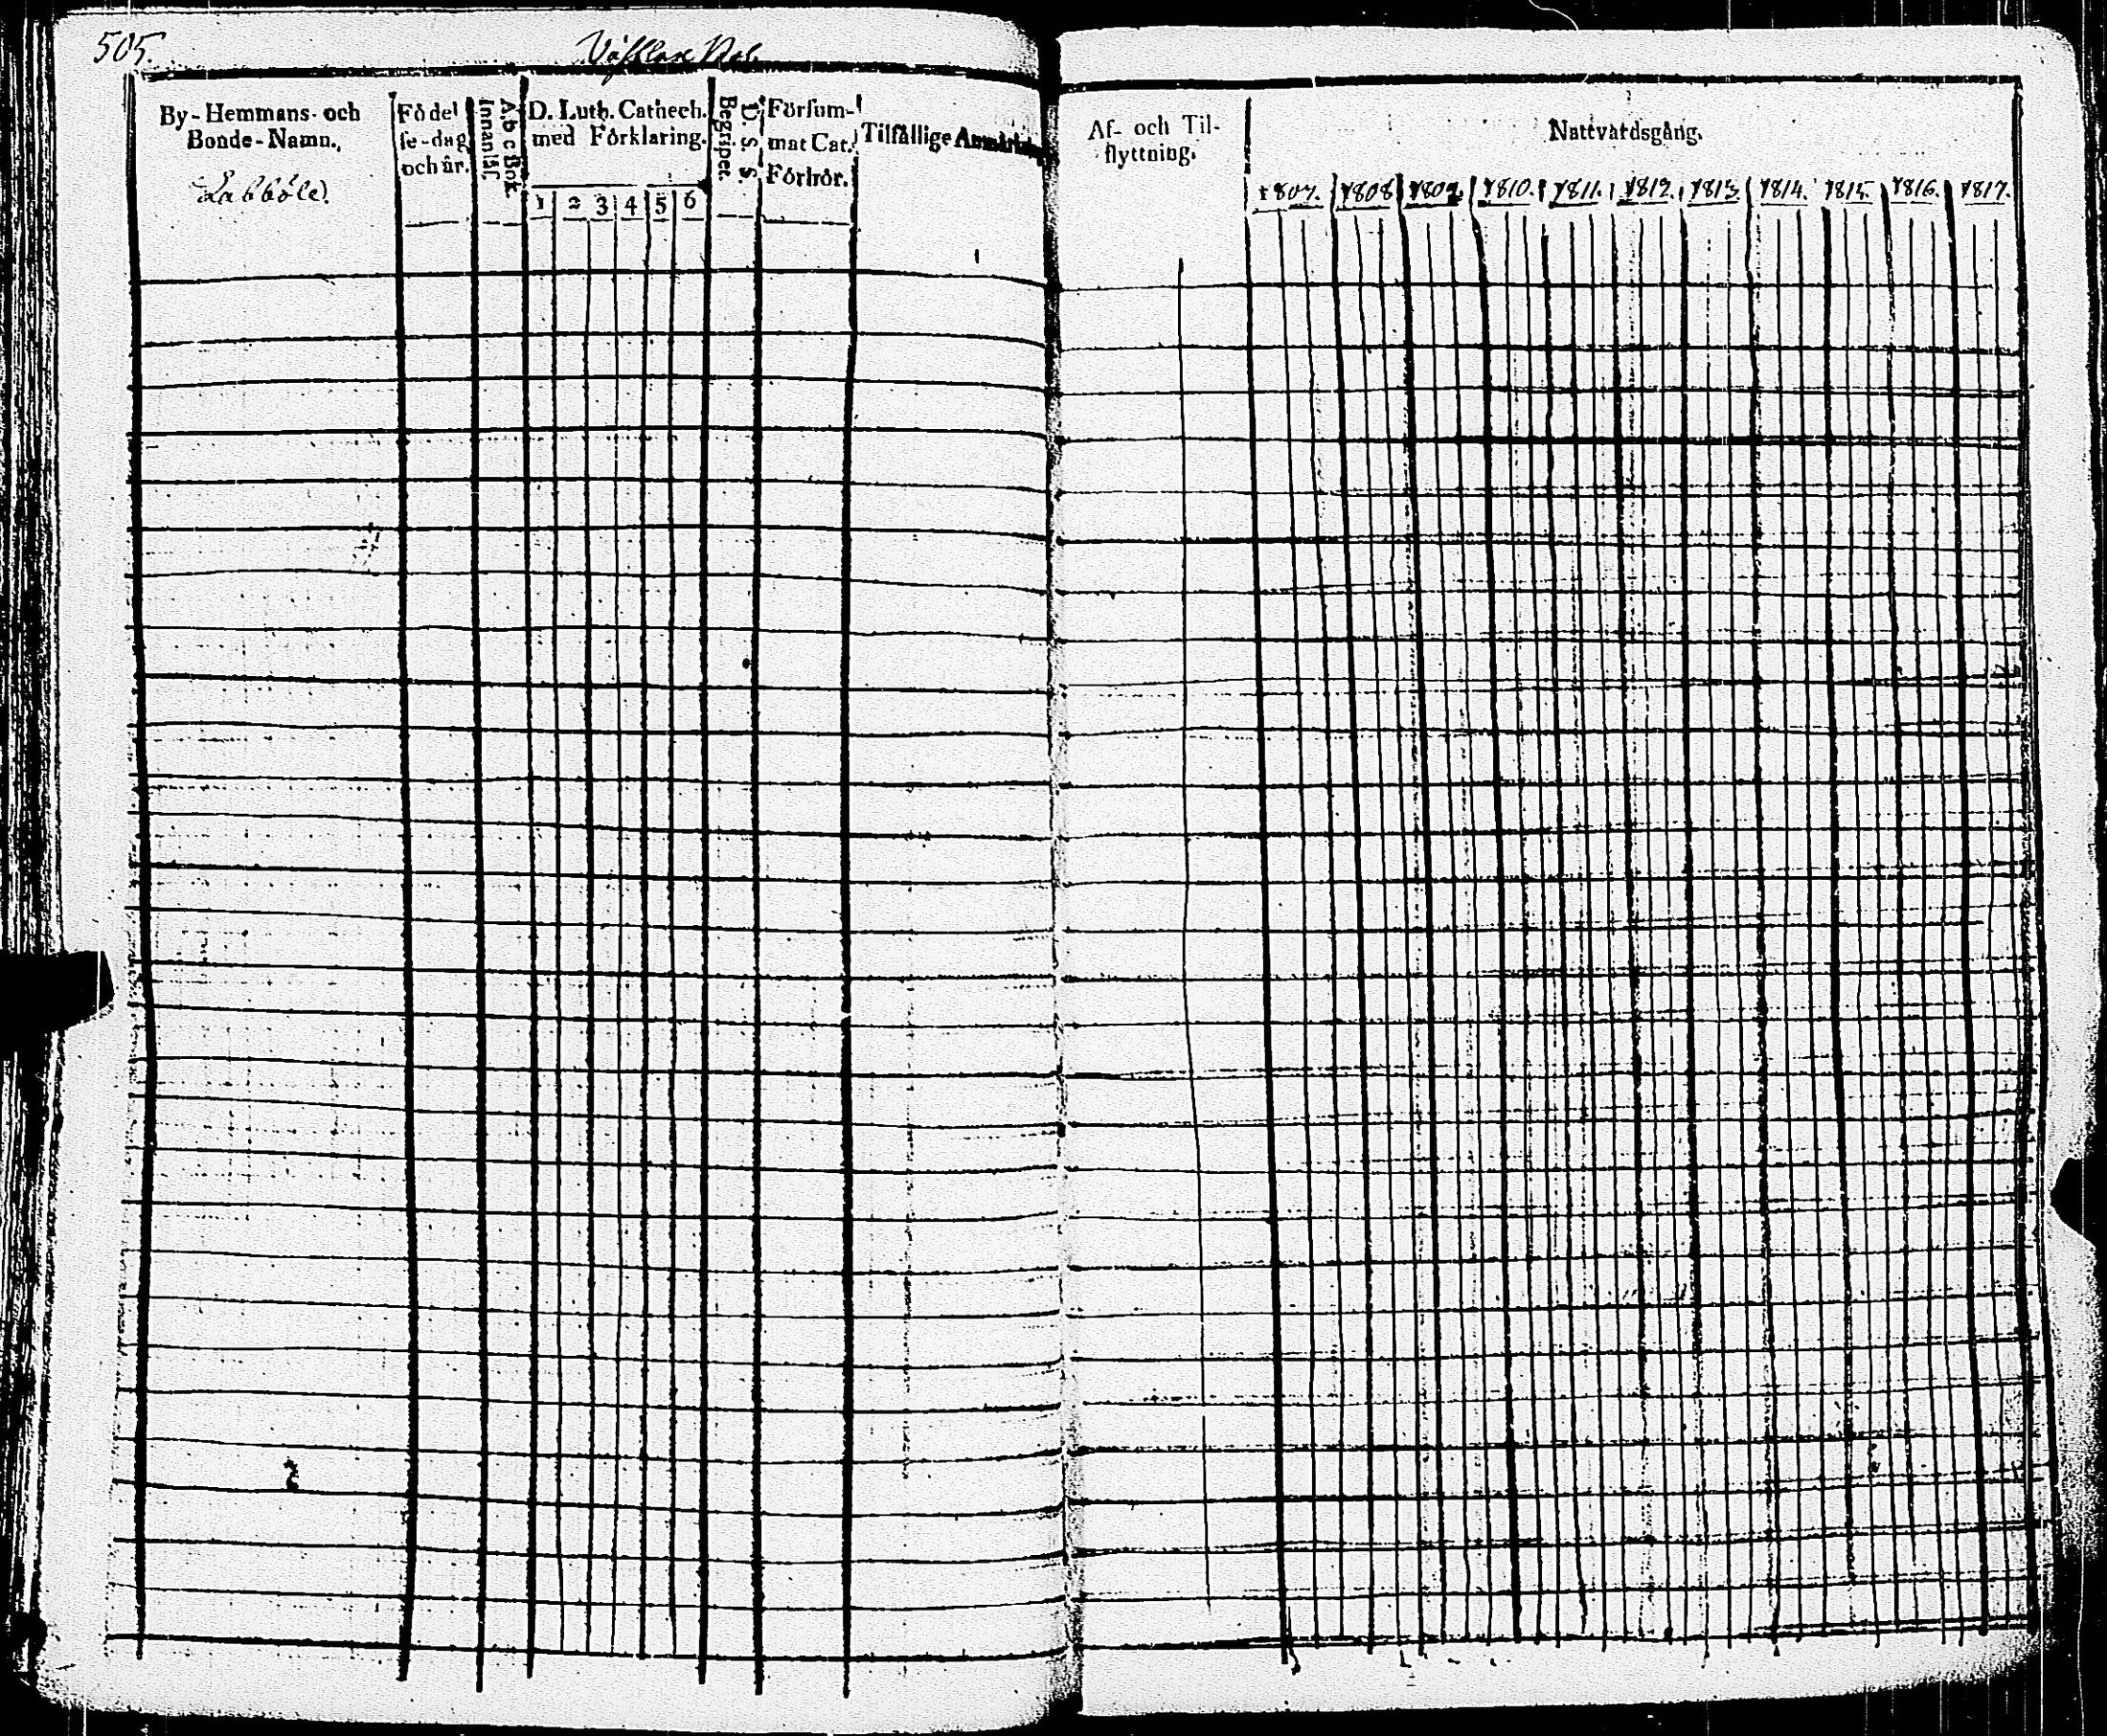 505.
By-Hemmans- och
Bonde-Namn.
Labböle.
Födel
se-dag
och år.
A b c Bok.
Innanläs.
D. Luth. Cathech.
med Förklaring.
1 2 3 4 5 6
D. S. S.
Begripet.
Försum-
mat Cat.
Förhör.
Tilfällige
Af- och Til-
flyttning.
Nattvardsgång.
1807. 1808 1809. 1810. 1811. 1812. 1813 1814. 1815. 1816. 1817.